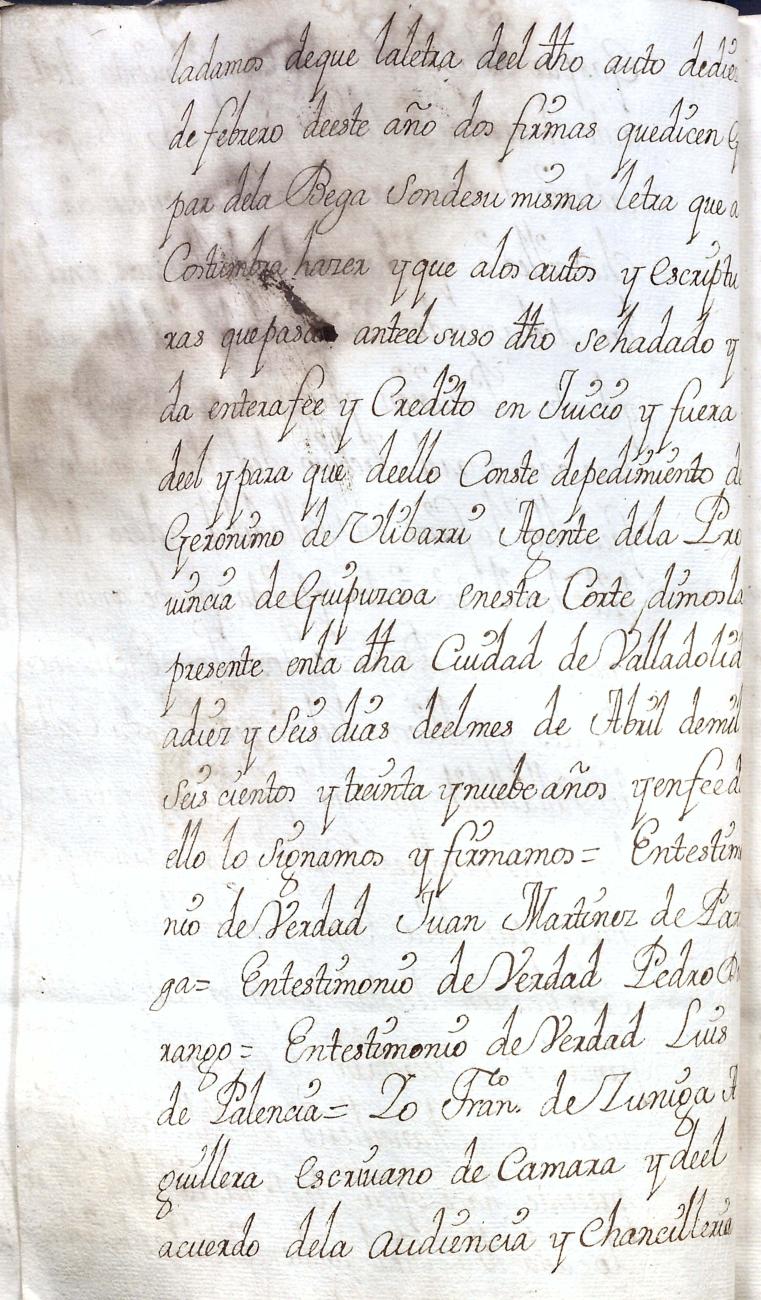 ladamos deque laletra deel dho auto dedie
de febrero deeste año dos firmas quedicen G
par dela Bega Sondesu misma letra que a
Costumbra hazer yque alos autos y Escriptu
ras quepasan anteel suso dho sehadado y
da enterafee y Credito en Juicio y fuera
deel ypara que deello Conste depedimiento de
Geronimo de Ulibarri Agente dela Pro
uincia de Guipuzcoa enesta Corte dimosla
presente enla dha Ciudad de Valladolid
adiez y Seis dias deelmes de Abril demil
Seis cientos y treinta ynuebe años yenfee d
ello lo signamos y firmamos = Entestim
nio de Verdad Juan Martinez de Par
ga = Entestimonio de Verdad Pedro
rango = Entestimonio de Verdad Luis
de Palencia = Yo Fran.co de Zuniga A
guillera Escriuano de Camara y deel
acuerdo dela audiencia y Chancilleria